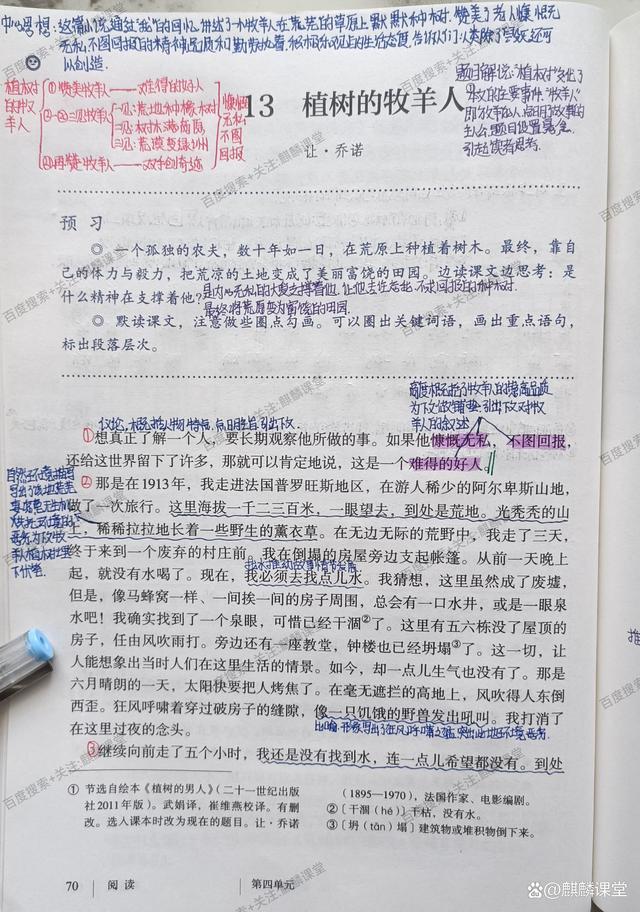 中心思想：这篇小说通过"我"的回忆,讲述了一个牧羊人在荒芜的草原上默默种树,赞美了老人慷慨无
无私,不图回报的精神品质和
以创造.
植树的牧羊人
①赞美牧羊人——难得的好人
②-④三见牧羊人
一见:荒地种橡树
二见:树林满高原
三见:荒漠变绿洲
再赞牧羊人——双手创奇迹
慷慨无私不图回报
题目解说:"植树"交代了
本文的主要事件,"牧羊人"
引起读者思考.
13 植树的牧羊人
让·乔诺
预 习
◎ 一个孤独的农夫，数十年如一日，在荒原上种植着树木。最终，靠自
己的体力与毅力，把荒凉的土地变成了美丽富饶的田园。边读课文边思考：是
什么精神在支撑着他？
是内心无私的大爱支撑着他,让他去
最终将荒原变为富饶的田园.
◎ 默读课文，注意做些圈点勾画。可以圈出关键词语，画出重点语句，
标出段落层次。
高度概括了牧羊人的
议论,概括人物特征,
①想真正了解一个人，要长期观察他所做的事。如果他慷慨无私，不图回报，
还给这世界留下了许多，那就可以肯定地说，这是一个难得的好人。
②那是在1913年，我走进法国普罗旺斯地区，在游人稀少的阿尔卑斯山地，
做了一次旅行。这里海拔一千二三百米，一眼望去，到处是荒地。光秃秃的山
上，稀稀拉拉地长着一些野生的薰衣草。在无边无际的荒野中，我走了三天，
终于来到一个废弃的村庄前。我在倒塌的房屋旁边支起帐篷。从前一天晚上
起，就没有水喝了。现在，我必须去找点儿水。我猜想，这里虽然成了废墟，
但是，像马蜂窝一样、一间挨一间的房子周围，总会有一口水井，或是一眼泉
水吧！我确实找到了一个泉眼，可惜已经干涸②了。这里有五六栋没了屋顶的
房子，任由风吹雨打。旁边还有一座教堂，钟楼也已经坍塌③了。这一切，让
人能想象出当时人们在这里生活的情景。如今，却一点儿生气也没有了。那是
六月晴朗的一天，太阳快要把人烤焦了。在毫无遮拦的高地上，风吹得人东倒
西歪。狂风呼啸着穿过破房子的缝隙，像一只饥饿的野兽发出吼叫。我打消了
在这里过夜的念头。
③继续向前走了五个小时，我还是没有找到水，连一点儿希望都没有。到处
① 节选自绘本《植树的男人》（二十一世纪出版
社2011年版）。武娟译，崔维燕校译。有删
改。选入课本时改为现在的题目。让·乔诺
（1895—1970），法国作家、电影编剧。
②〔干涸（hé）〕干枯，没有水。
③〔坍（tān）塌〕建筑物或堆积物倒下来。
70 阅 读 第四单元
百度搜索+关注:麒麟课堂
麒麟课堂